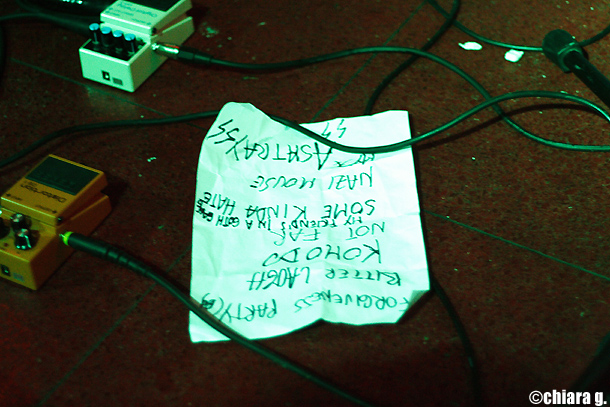 FORGIVENESS PARTY
BITTER LAUGH
KOMODO
NOT FAR
MY FRIEND'S IN A GOTH BAND
SOME KINDA HATE
NAZI HOUSE
ASHTRAY
Distortion
©chiara g.